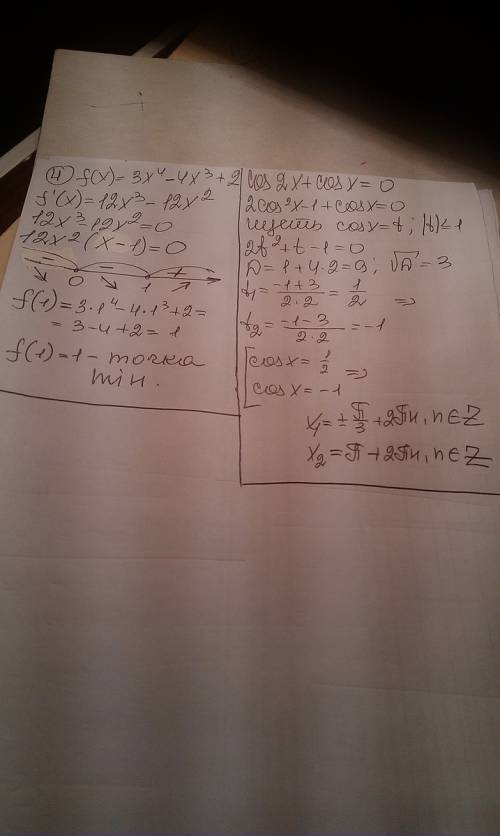 ④ f(x)=3x⁴-4x³+2
f'(x)=12x³-12x²
12x³-12x²=0
12x²(x-1)=0
- - +
0 1
f(1)=3·1⁴-4·1³+2=
=3-4+2=1
f(1)=1-точка
min.
cos2x+cosx=0
2cos²x-1+cosx=0
cosx=t; |t|≤1
2t²+t-1=0
D=1+4·2=9; √D=3
t₁=(-1+3)/(2·2)=1/2 =>
t₂=(-1-3)/(2·2)=-1
[cosx=1/2 =>
cosx=-1
x₁=±π/3+2πn, n∈Z
x₂=π+2πn, n∈Z